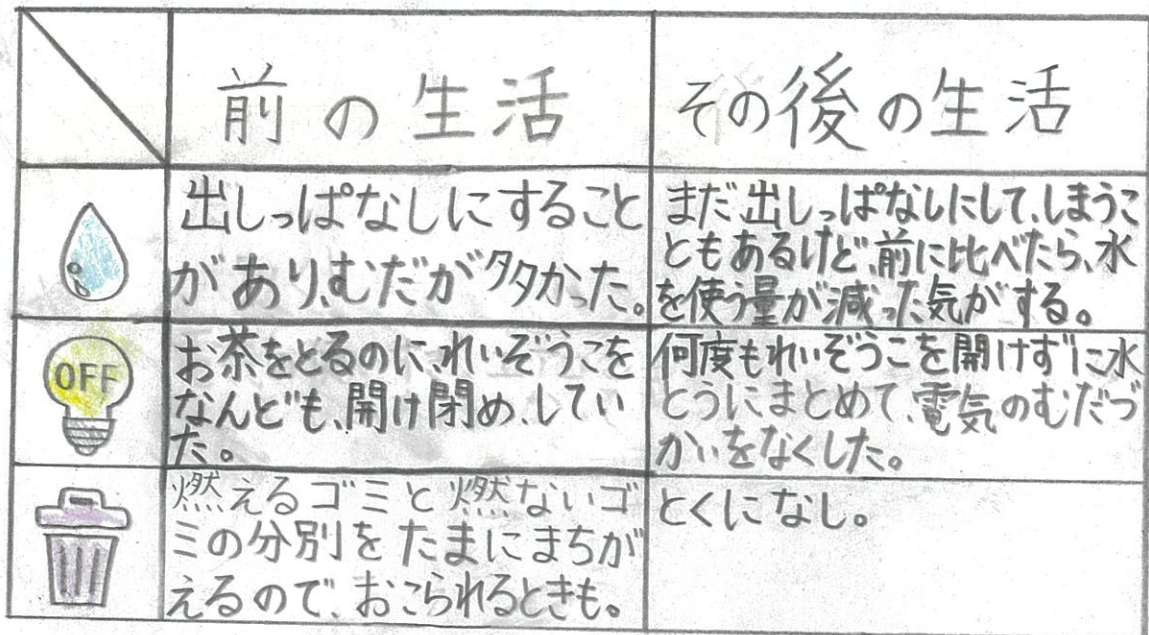 前の生活
その後の生活
出しっぱなしにすること
があり、むだが多かった。
まだ、出しっぱなしにして、しまうこ
ともあるけど、前に比べたら、水
を使う量が減った気がする。
OFF
お茶をとるのに、れいぞうこを
なんども、開け閉め、してい
た。
何度もれいぞうこを開けずに水
とうにまとめて、電気のむだづ
かいをなくした。
燃えるゴミと燃ないゴ
ミの分別をたまにまちが
えるので、おこられるときも。
とくになし。